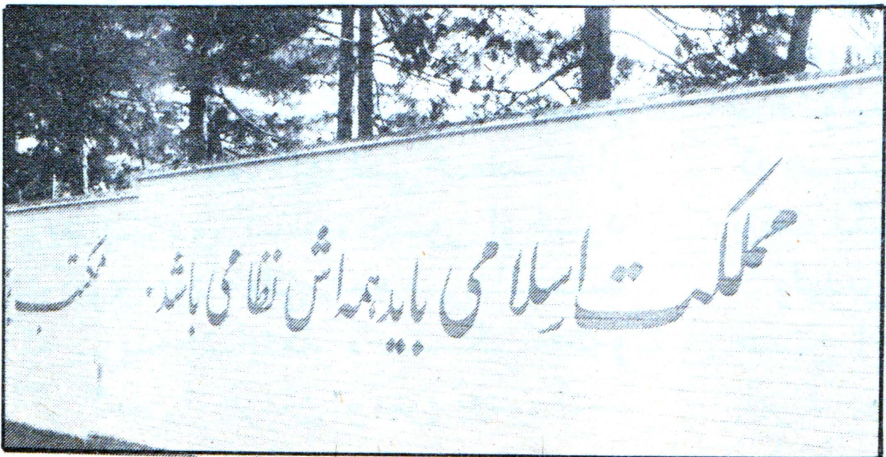 مملکت اسلامی باید همه اش نظامی باشد.
مکتب